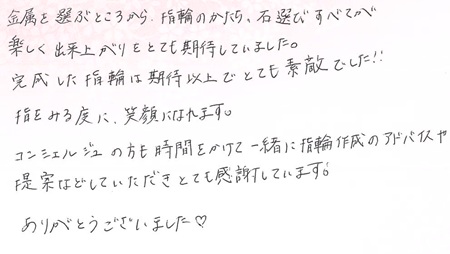 金属を選ぶところから、指輪のかたち、石選びすべてが
楽しく出来上がりをとても期待していました。
完成した指輪は期待以上でとても素敵でした!!
指をみる度に、笑顔になれます。
コンシェルジュの方も時間をかけて一緒に指輪作成のアドバイスや
提案などしていただきとても感謝しています。
ありがとうございました♡